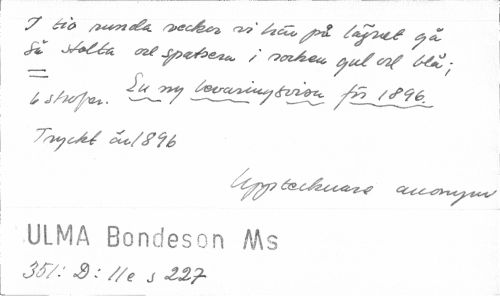 I tio runda veckor vi här på lägret gå
Så stolta och spatsera i rocken gul och blå;
6 strofer. En ny beväringsvisa för 1896.
Tryckt år 1896
Upptecknare anonym
ULMA Bondeson Ms
351: D: 11e s 227